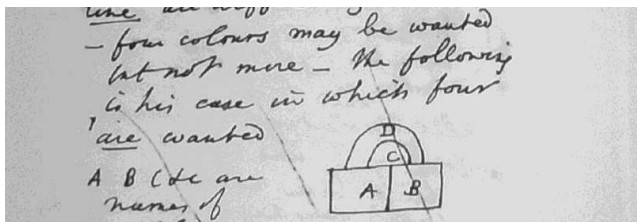 line are
— four colours may be wanted
but not more — the following
is his case in which four
are wanted
D
C
A B
A B C &c are
names of